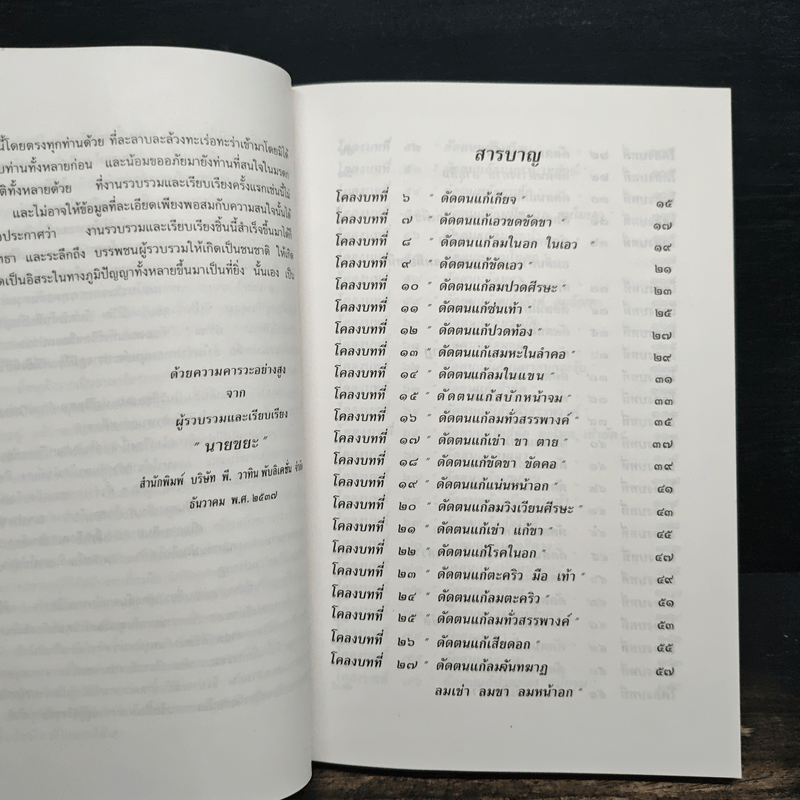 นี้โดยตรงทุกท่านด้วย ที่ละลาบละล้วงทะเร่อทะร่าเข้ามาโดยมิได้
ท่านทั้งหลายก่อน และน้อมขออภัยมายังท่านที่สนใจในมรดก
ทั้งหลายด้วย ที่งานรวบรวมและเรียบเรียงครั้งแรกเช่นนี้ไม่
และไม่อาจให้ข้อมูลที่ละเอียดเพียงพอสมกับความสนใจนั้นได้
ประกาศว่า งานรวบรวมและเรียบเรียงชิ้นนี้สำเร็จขึ้นมาได้ก็
และระลึกถึง บรรพชนผู้รวบรวมให้เกิดเป็นชนชาติ ให้เกิด
เป็นอิสระในทางภูมิปัญญาทั้งหลายขึ้นมาเป็นที่ยิ่ง นั้นเอง เป็น
ด้วยความคารวะอย่างสูง
จาก
ผู้รวบรวมและเรียบเรียง
" นายขยะ "
สำนักพิมพ์ บริษัท พี. วาทิน พับลิเคชั่น จำกัด
ธันวาคม พ.ศ. ๒๕๓๗
สารบาญ
โคลงบทที่ ๖ " ดัดตนแก้เกียจ " ๑๕
โคลงบทที่ ๗ " ดัดตนแก้เอวขดขัดขา " ๑๗
โคลงบทที่ ๘ " ดัดตนแก้ลมในอก ในเอว " ๑๙
โคลงบทที่ ๙ " ดัดตนแก้ขัดเอว " ๒๑
โคลงบทที่ ๑๐ " ดัดตนแก้ลมปวดศีรษะ " ๒๓
โคลงบทที่ ๑๑ " ดัดตนแก้ซ่นเท้า " ๒๕
โคลงบทที่ ๑๒ " ดัดตนแก้ปวดท้อง " ๒๗
โคลงบทที่ ๑๓ " ดัดตนแก้เสมหะในลำคอ " ๒๙
โคลงบทที่ ๑๔ " ดัดตนแก้ลมในแขน " ๓๑
โคลงบทที่ ๑๕ " ดัดตนแก้สบักหน้าจม " ๓๓
โคลงบทที่ ๑๖ " ดัดตนแก้ลมทั่วสรรพางค์ " ๓๕
โคลงบทที่ ๑๗ " ดัดตนแก้เข่า ขา ตาย " ๓๗
โคลงบทที่ ๑๘ " ดัดตนแก้ขัดขา ขัดคอ " ๓๙
โคลงบทที่ ๑๙ " ดัดตนแก้แน่นหน้าอก " ๔๑
โคลงบทที่ ๒๐ " ดัดตนแก้ลมวิงเวียนศีรษะ " ๔๓
โคลงบทที่ ๒๑ " ดัดตนแก้เข่า แก้ขา " ๔๕
โคลงบทที่ ๒๒ " ดัดตนแก้โรคในอก " ๔๗
โคลงบทที่ ๒๓ " ดัดตนแก้ตะคริว มือ เท้า " ๔๙
โคลงบทที่ ๒๔ " ดัดตนแก้ลมตะคริว " ๕๑
โคลงบทที่ ๒๕ " ดัดตนแก้ลมทั่วสรรพางค์ " ๕๓
โคลงบทที่ ๒๖ " ดัดตนแก้เสียดอก " ๕๕
โคลงบทที่ ๒๗ " ดัดตนแก้ลมจันทฆาฏ ๕๗
ลมเข่า ลมขา ลมหน้าอก "